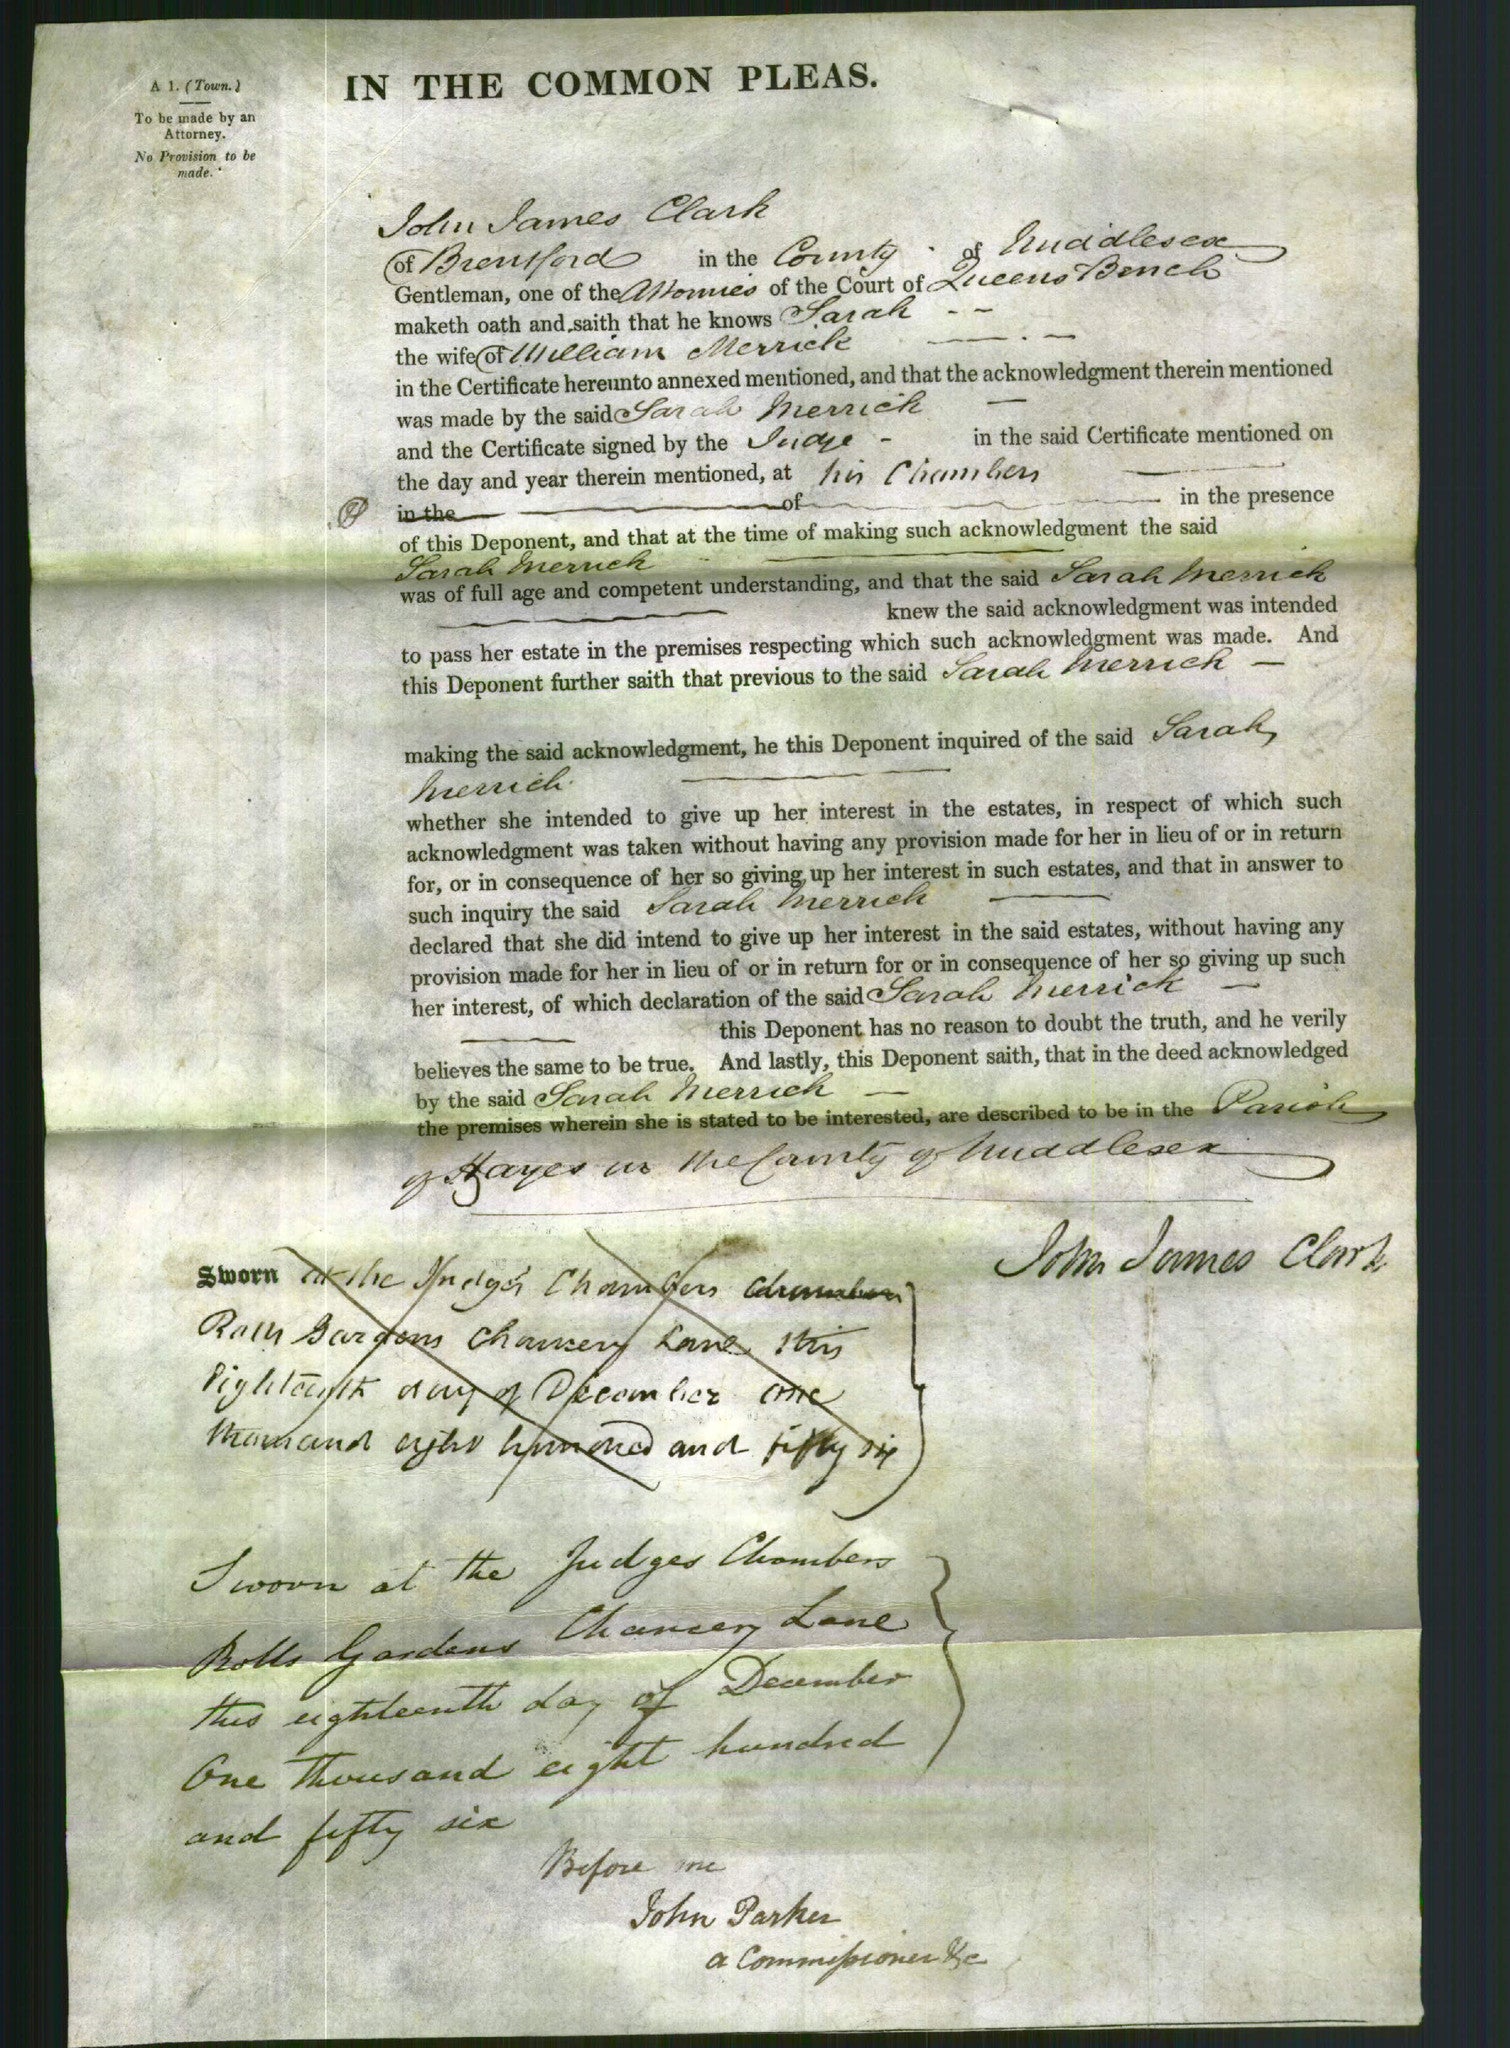 A 1. (Town.)
To be made by an
Attorney.
No Provision to be
made.
IN THE COMMON PLEAS.
John James Clark
of Brentford in the County of Middlesex
Gentleman, one of the Attornies of the Court of Queens Bench
maketh oath and saith that he knows Sarah
the wife of William Merrick
in the Certificate hereunto annexed mentioned, and that the acknowledgment therein mentioned
was made by the said Sarah Merrick
and the Certificate signed by the Judge in the said Certificate mentioned on
the day and year therein mentioned, at his Chambers
in the of in the presence
of this Deponent, and that at the time of making such acknowledgment the said
Sarah Merrick
was of full age and competent understanding, and that the said Sarah Merrick
knew the said acknowledgment was intended
to pass her estate in the premises respecting which such acknowledgment was made. And
this Deponent further saith that previous to the said Sarah Merrick
making the said acknowledgment, he this Deponent inquired of the said Sarah
Merrick
whether she intended to give up her interest in the estates, in respect of which such
acknowledgment was taken without having any provision made for her in lieu of or in return
for, or in consequence of her so giving up her interest in such estates, and that in answer to
such inquiry the said Sarah Merrick
declared that she did intend to give up her interest in the said estates, without having any
provision made for her in lieu of or in return for or in consequence of her so giving up such
her interest, of which declaration of the said Sarah Merrick
this Deponent has no reason to doubt the truth, and he verily
believes the same to be true. And lastly, this Deponent saith, that in the deed acknowledged
by the said Sarah Merrick
the premises wherein she is stated to be interested, are described to be in the Parish
of Hayes in the County of Middlesex
John James Clark
Sworn at the Judges Chambers Chambers
Rolls Gardens Chancery Lane this
Eighteenth day of December one
thousand eight hundred and fifty six
Sworn at the Judges Chambers
Rolls Gardens Chancery Lane
this eighteenth day of December
One thousand eight hundred
and fifty six
Before me
John Parker
a Commissioner &c